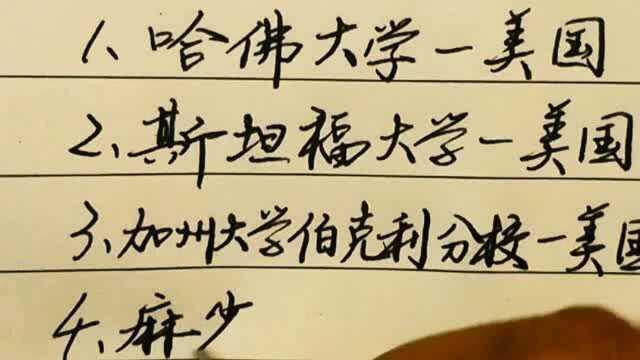 1、哈佛大学一美国
2、斯坦福大学一美国
3、加州大学伯克利分校一美国
4、麻少